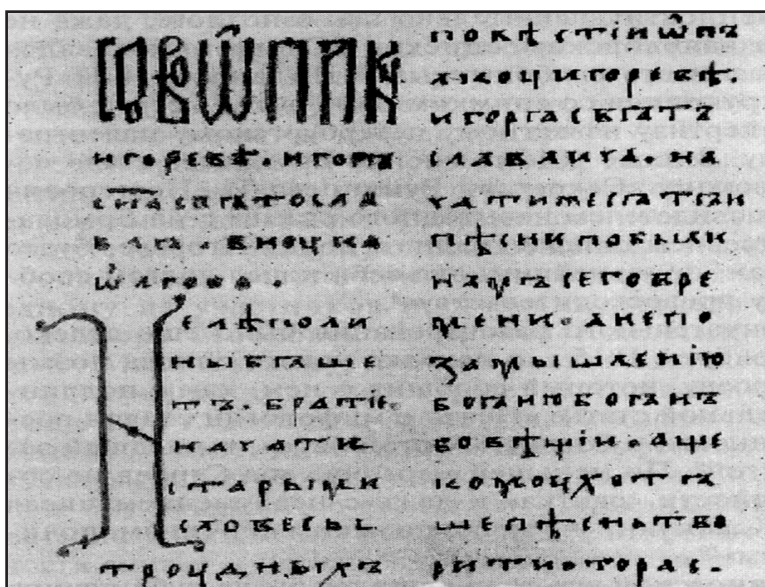 слово ѿ плкꙋ
игоревѣ. игорꙗ
сна свꙗтосла
влꙗ. вноука
ѡлгова.
Не лѣполи
ны бꙗше
тъ. братіе.
начати
старыми
словесы
троудныхъ
повѣстіи ѿ пъ
лкоу игоревѣ.
игорꙗ свꙗтъ
славлича. на
чатижесꙗтъи
пѣснипобыли
намъсеговре
мени. анепо
замышленію
боꙗнюбоꙗнъ
бовѣщіи. аще
комоухотꙗ
шепѣсньтво
рититорас.